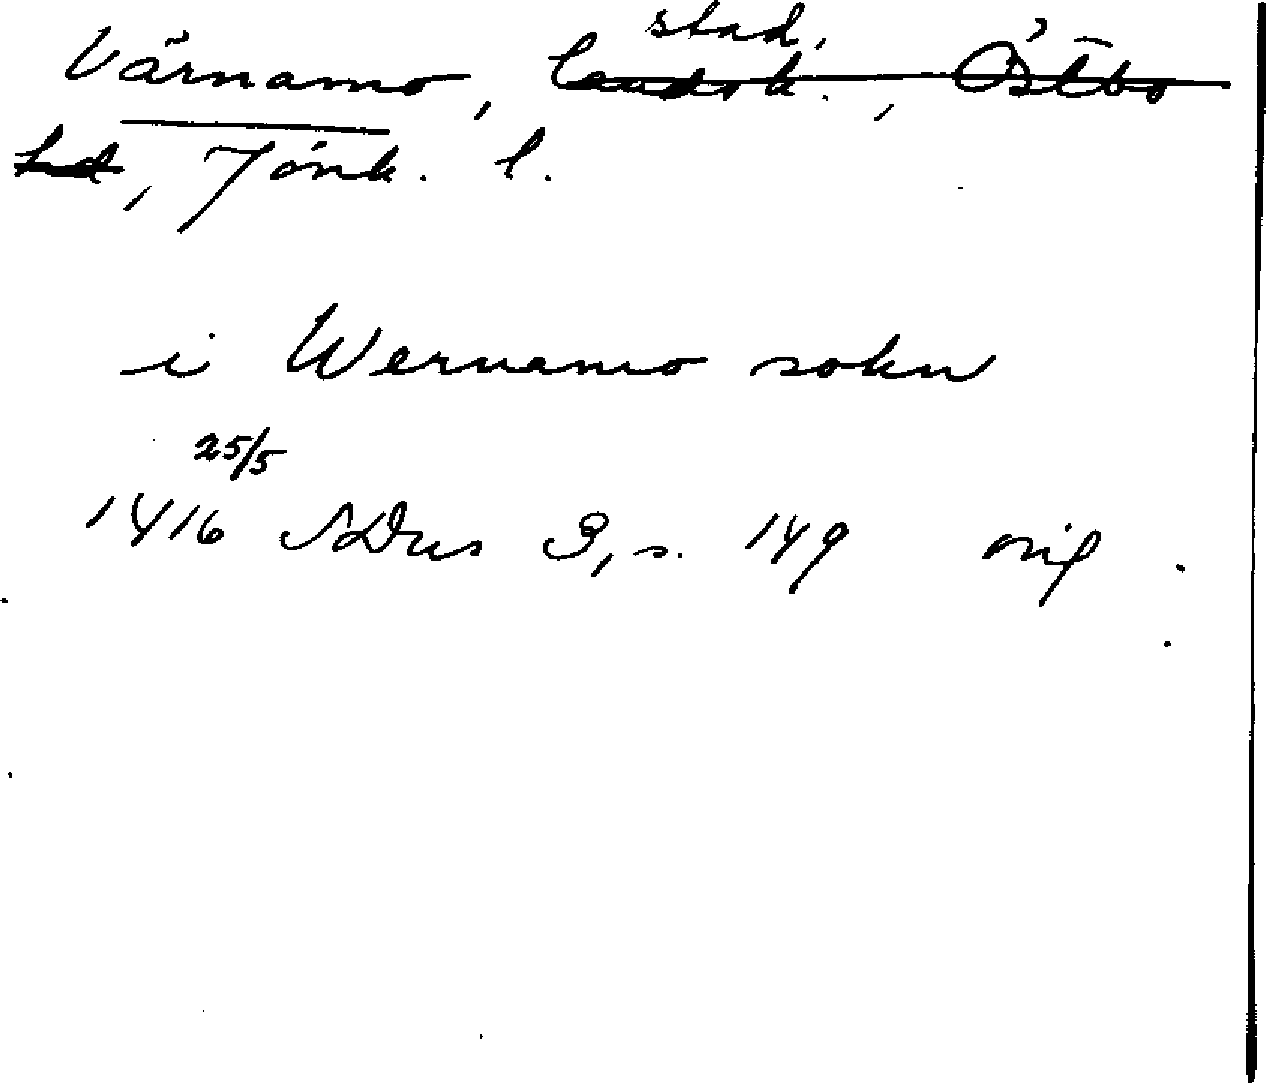 Värnamo, stad, landsk., Östbo
hd, Jönk. l.
i Wernamo sokn
25/5
1416 SDns 3, s. 149 orig.